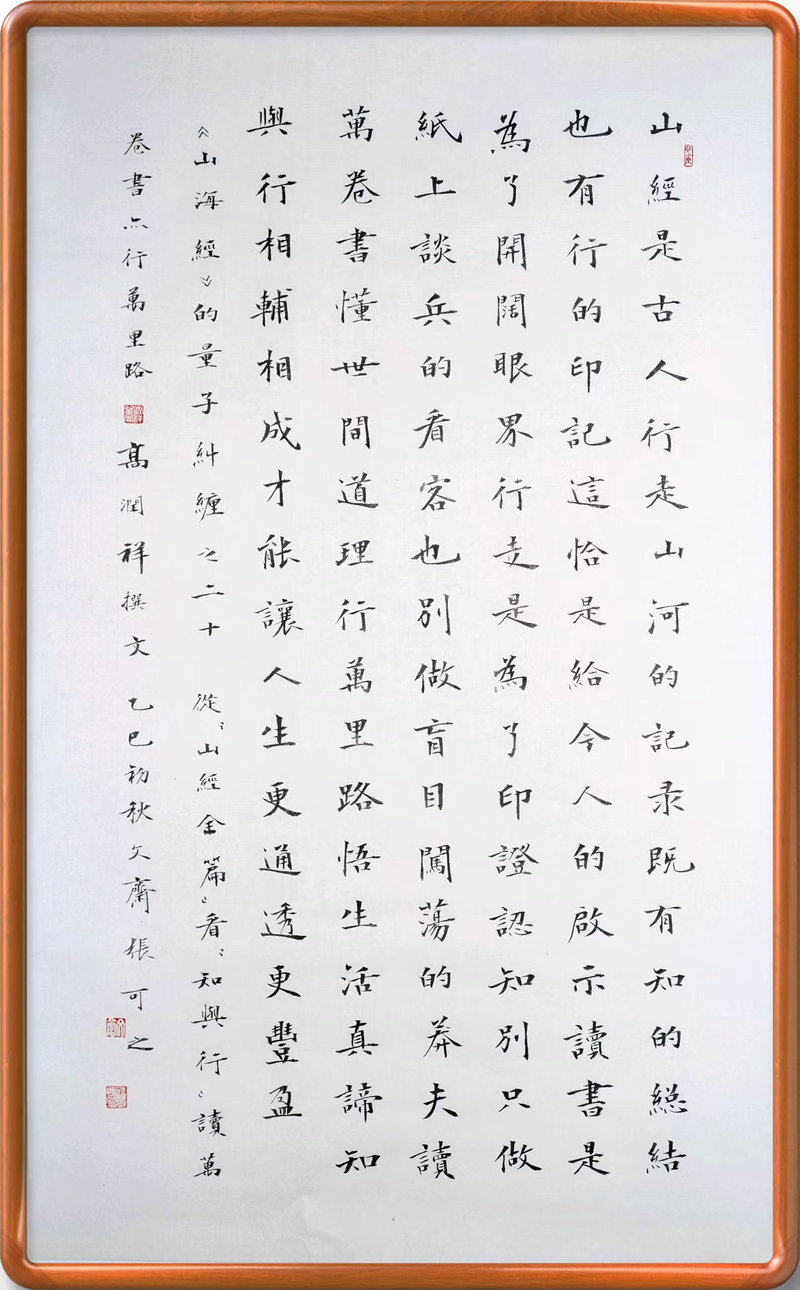 山經是古人行走山河的記录既有知的総結
也有行的印記這恰是給今人的啟示讀書是
為了開闊眼界行走是為了印證認知別只做
紙上談兵的看客也別做盲目闖蕩的莽夫讀
萬卷書懂世間道理行萬里路悟生活真諦知
與行相輔相成才能讓人生更通透更豐盈
《山海經》的量子糾纏之二十 從“山經全篇”看“知與行”讀萬
卷書亦行萬里路 高潤祥撰文 乙巳初秋文齋張可之